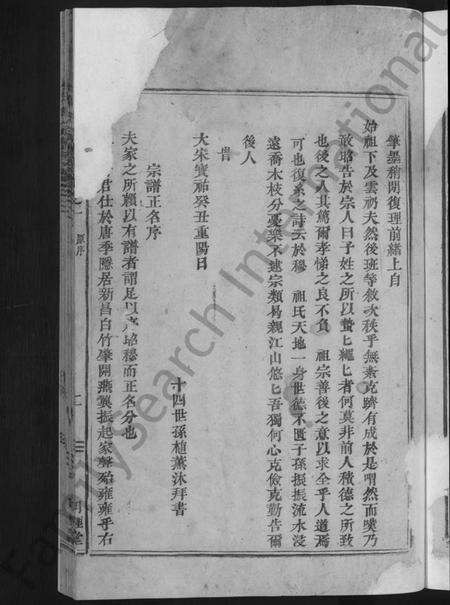 筆墨稍閒復理前緒上自
始祖下及雲礽夫然後班等敘次秩乎無紊克躋有成於是喟然而嘆乃
敢昭告於宗人曰子姓之所以蟄蟄繩繩者何莫非前人積德之所致
也後之人其篤爾孝悌之良不負 祖宗善後之意以求全乎人道焉
可也復系之詩云於穆 祖氏天地一身世德不匱子孫振振流水浸
遠喬木枝分憂樂不逮宗類易親江山悠悠吾獨何心克儉克勤告爾
後人
旹
大宋寶祐癸丑重陽日
十四世孫植薰沐拜書
宗譜正名序
夫家之所賴以有譜者謂是以序昭穆而正名分也
君仕於唐季隱居新昌白竹肇開燕翼振起家聲殆雍雍乎右
原序
二
堂
FamilySearch International